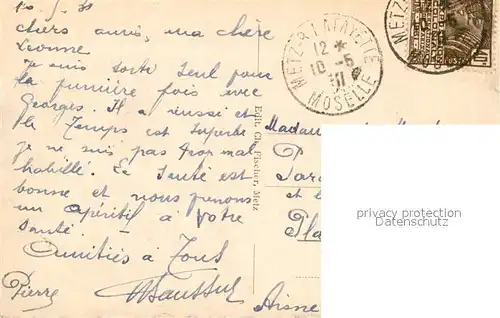 10.5.31
Chers amis, ma chère
Je suis sorti seul pour
la première fois avec
Georges. Il a réussi et
le Temps est superbe
je ne suis pas trop mal
habillé. La Santé est
bonne et nous prenons
un apéritif à votre
Santé.
Amitiés à Tous
Pierre
Edit. Ch. Fischer, Metz
METZ-R.LAFAYETTE
12 *
10 -5
31
MOSELLE
METZ
Madame
Aisne
privacy protection
Datenschutz